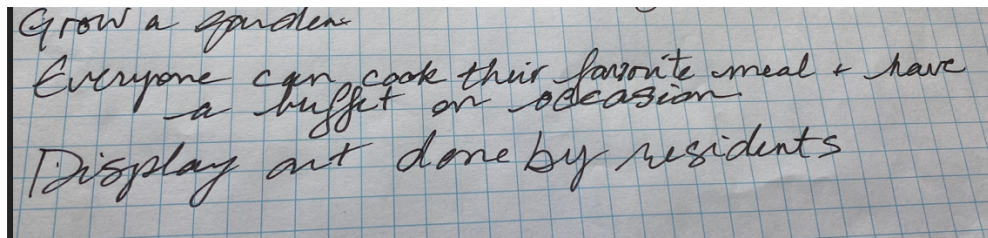 Grow a garden
Everyone can cook their favorite meal + have
a buffet on occasion.
Display art done by residents